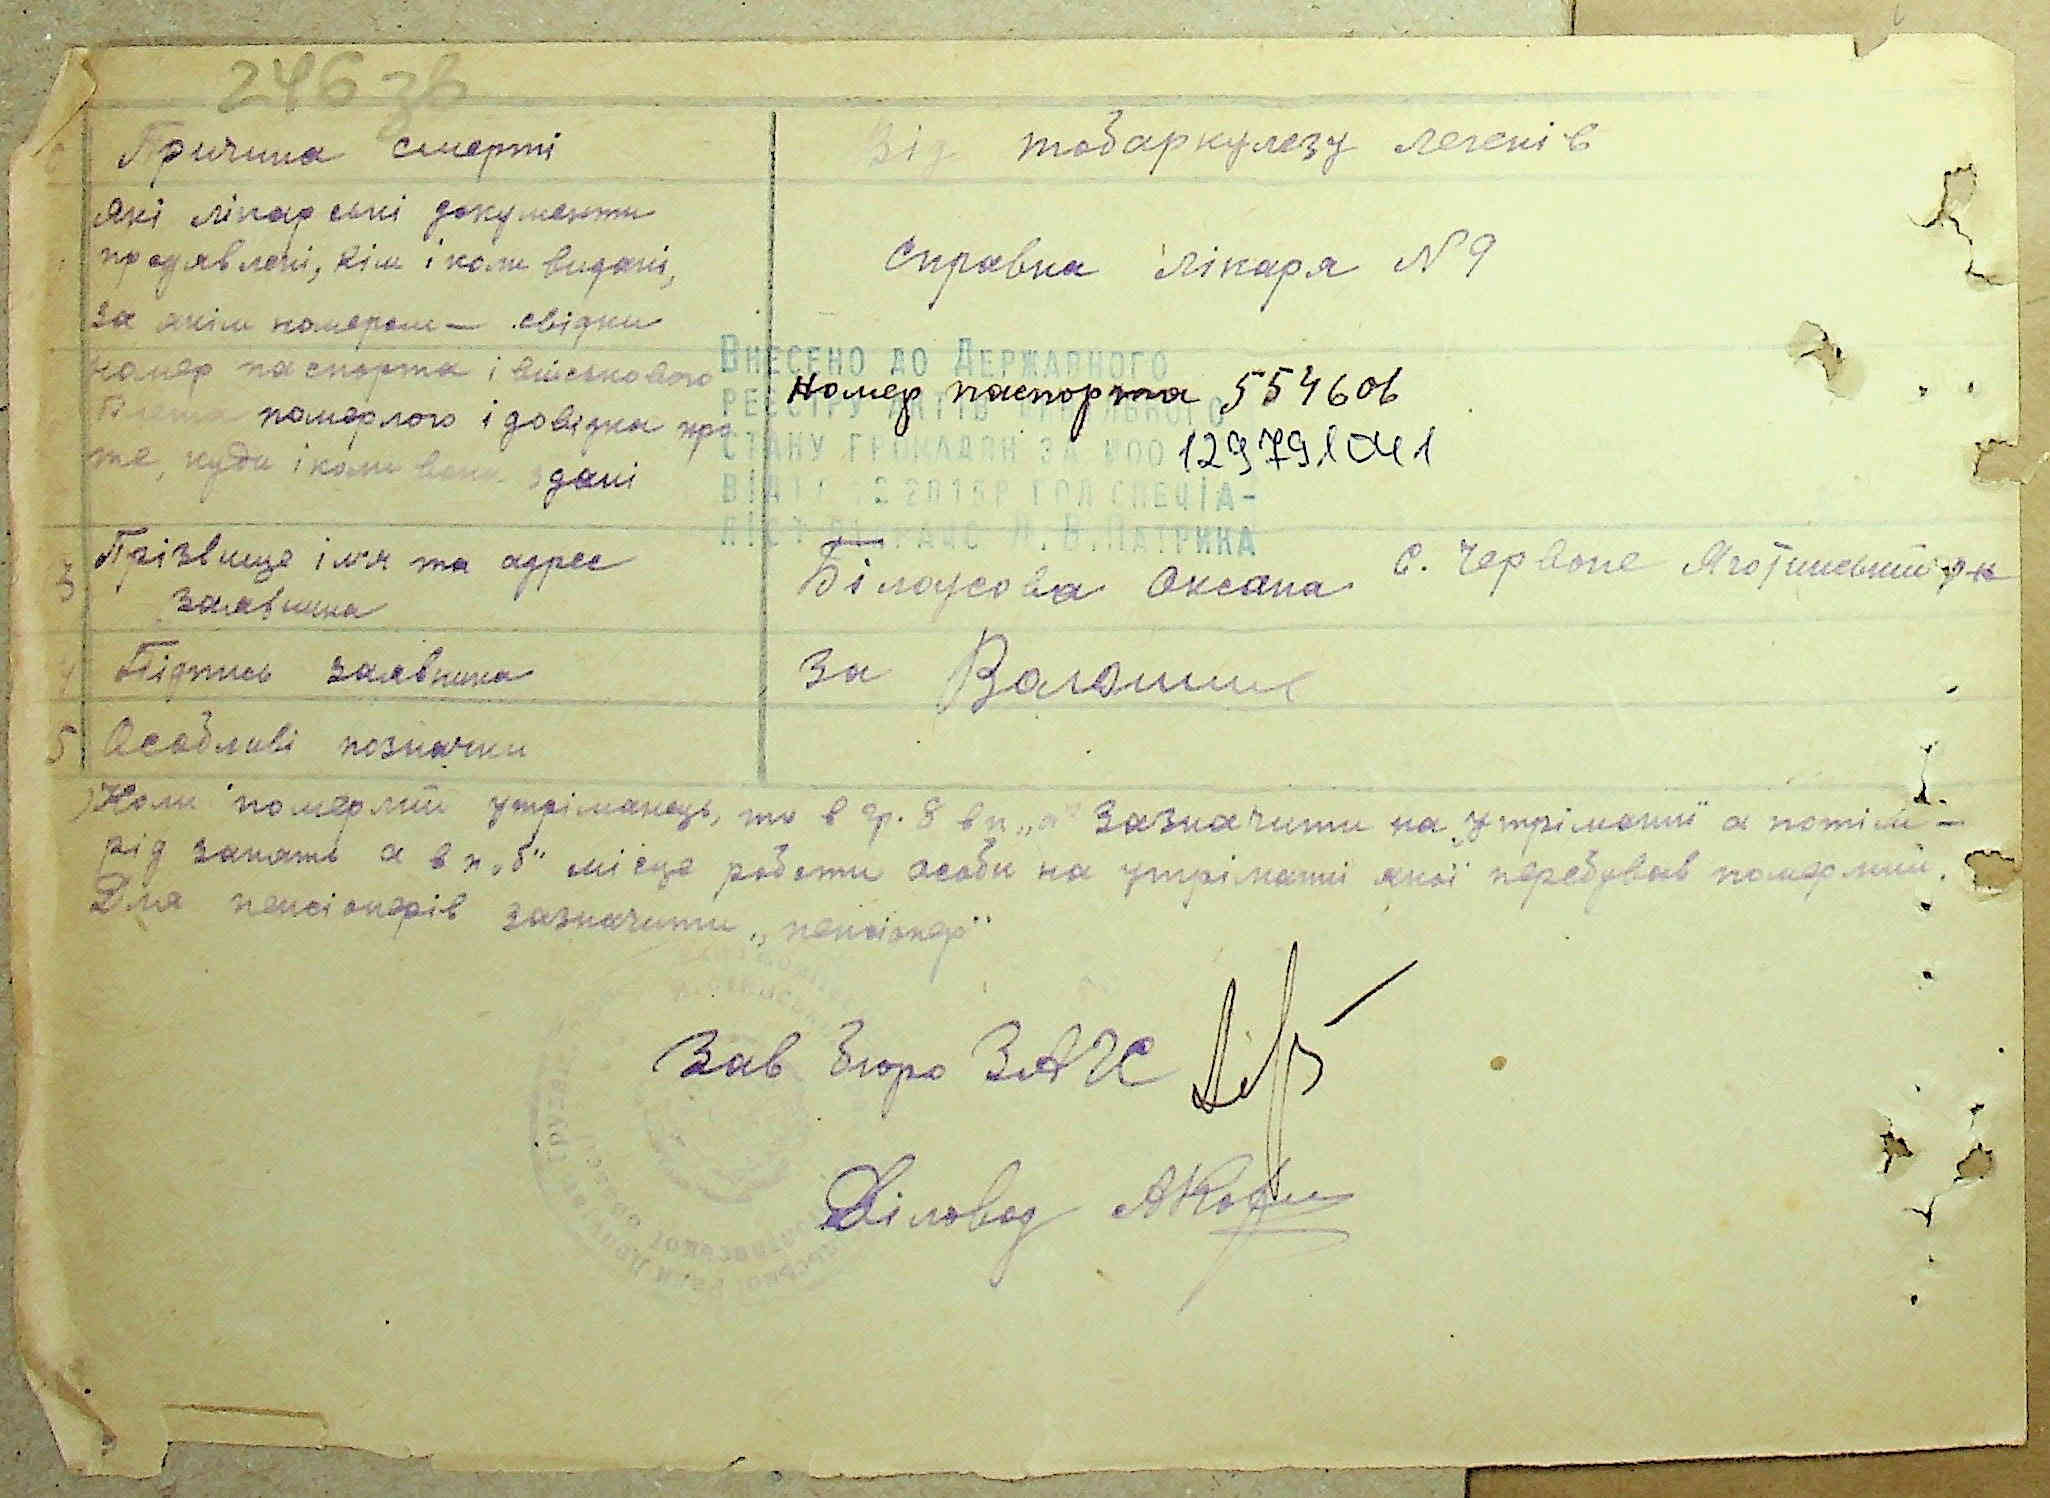 246 зв
Причина смерті
Від тобаркулезу легенів
Які лікарські документи
продявлені, кім і коли видані,
за якім номером — свідки
Справка лікаря № 9
Номер паспорта і військового
померлого і довідка про
те, куди і коли вони здані
Номер паспорта 554606
Внесено до Державного
реєстру актів цивільного
стану громадян за №00 12979 1041
2016р гол спеціа-
ліст ДРАЦС Патрика
3 Прізвище імя та адрес
заявника
Білоусова Оксана с. Червоне Яготинський р-н
4 Підпись заявника
за Волошин
5 Особливі позначки
) Коли померлий утріманець, то в гр. 8 в п „а" зазначити на утріманні а потім —
рід занять а в п „б" місце роботи особи на утріманні якої перебував померлий.
Для пенсіонерів зазначити „пенсіонер"
Зав Бюро ЗАГС
Діловод